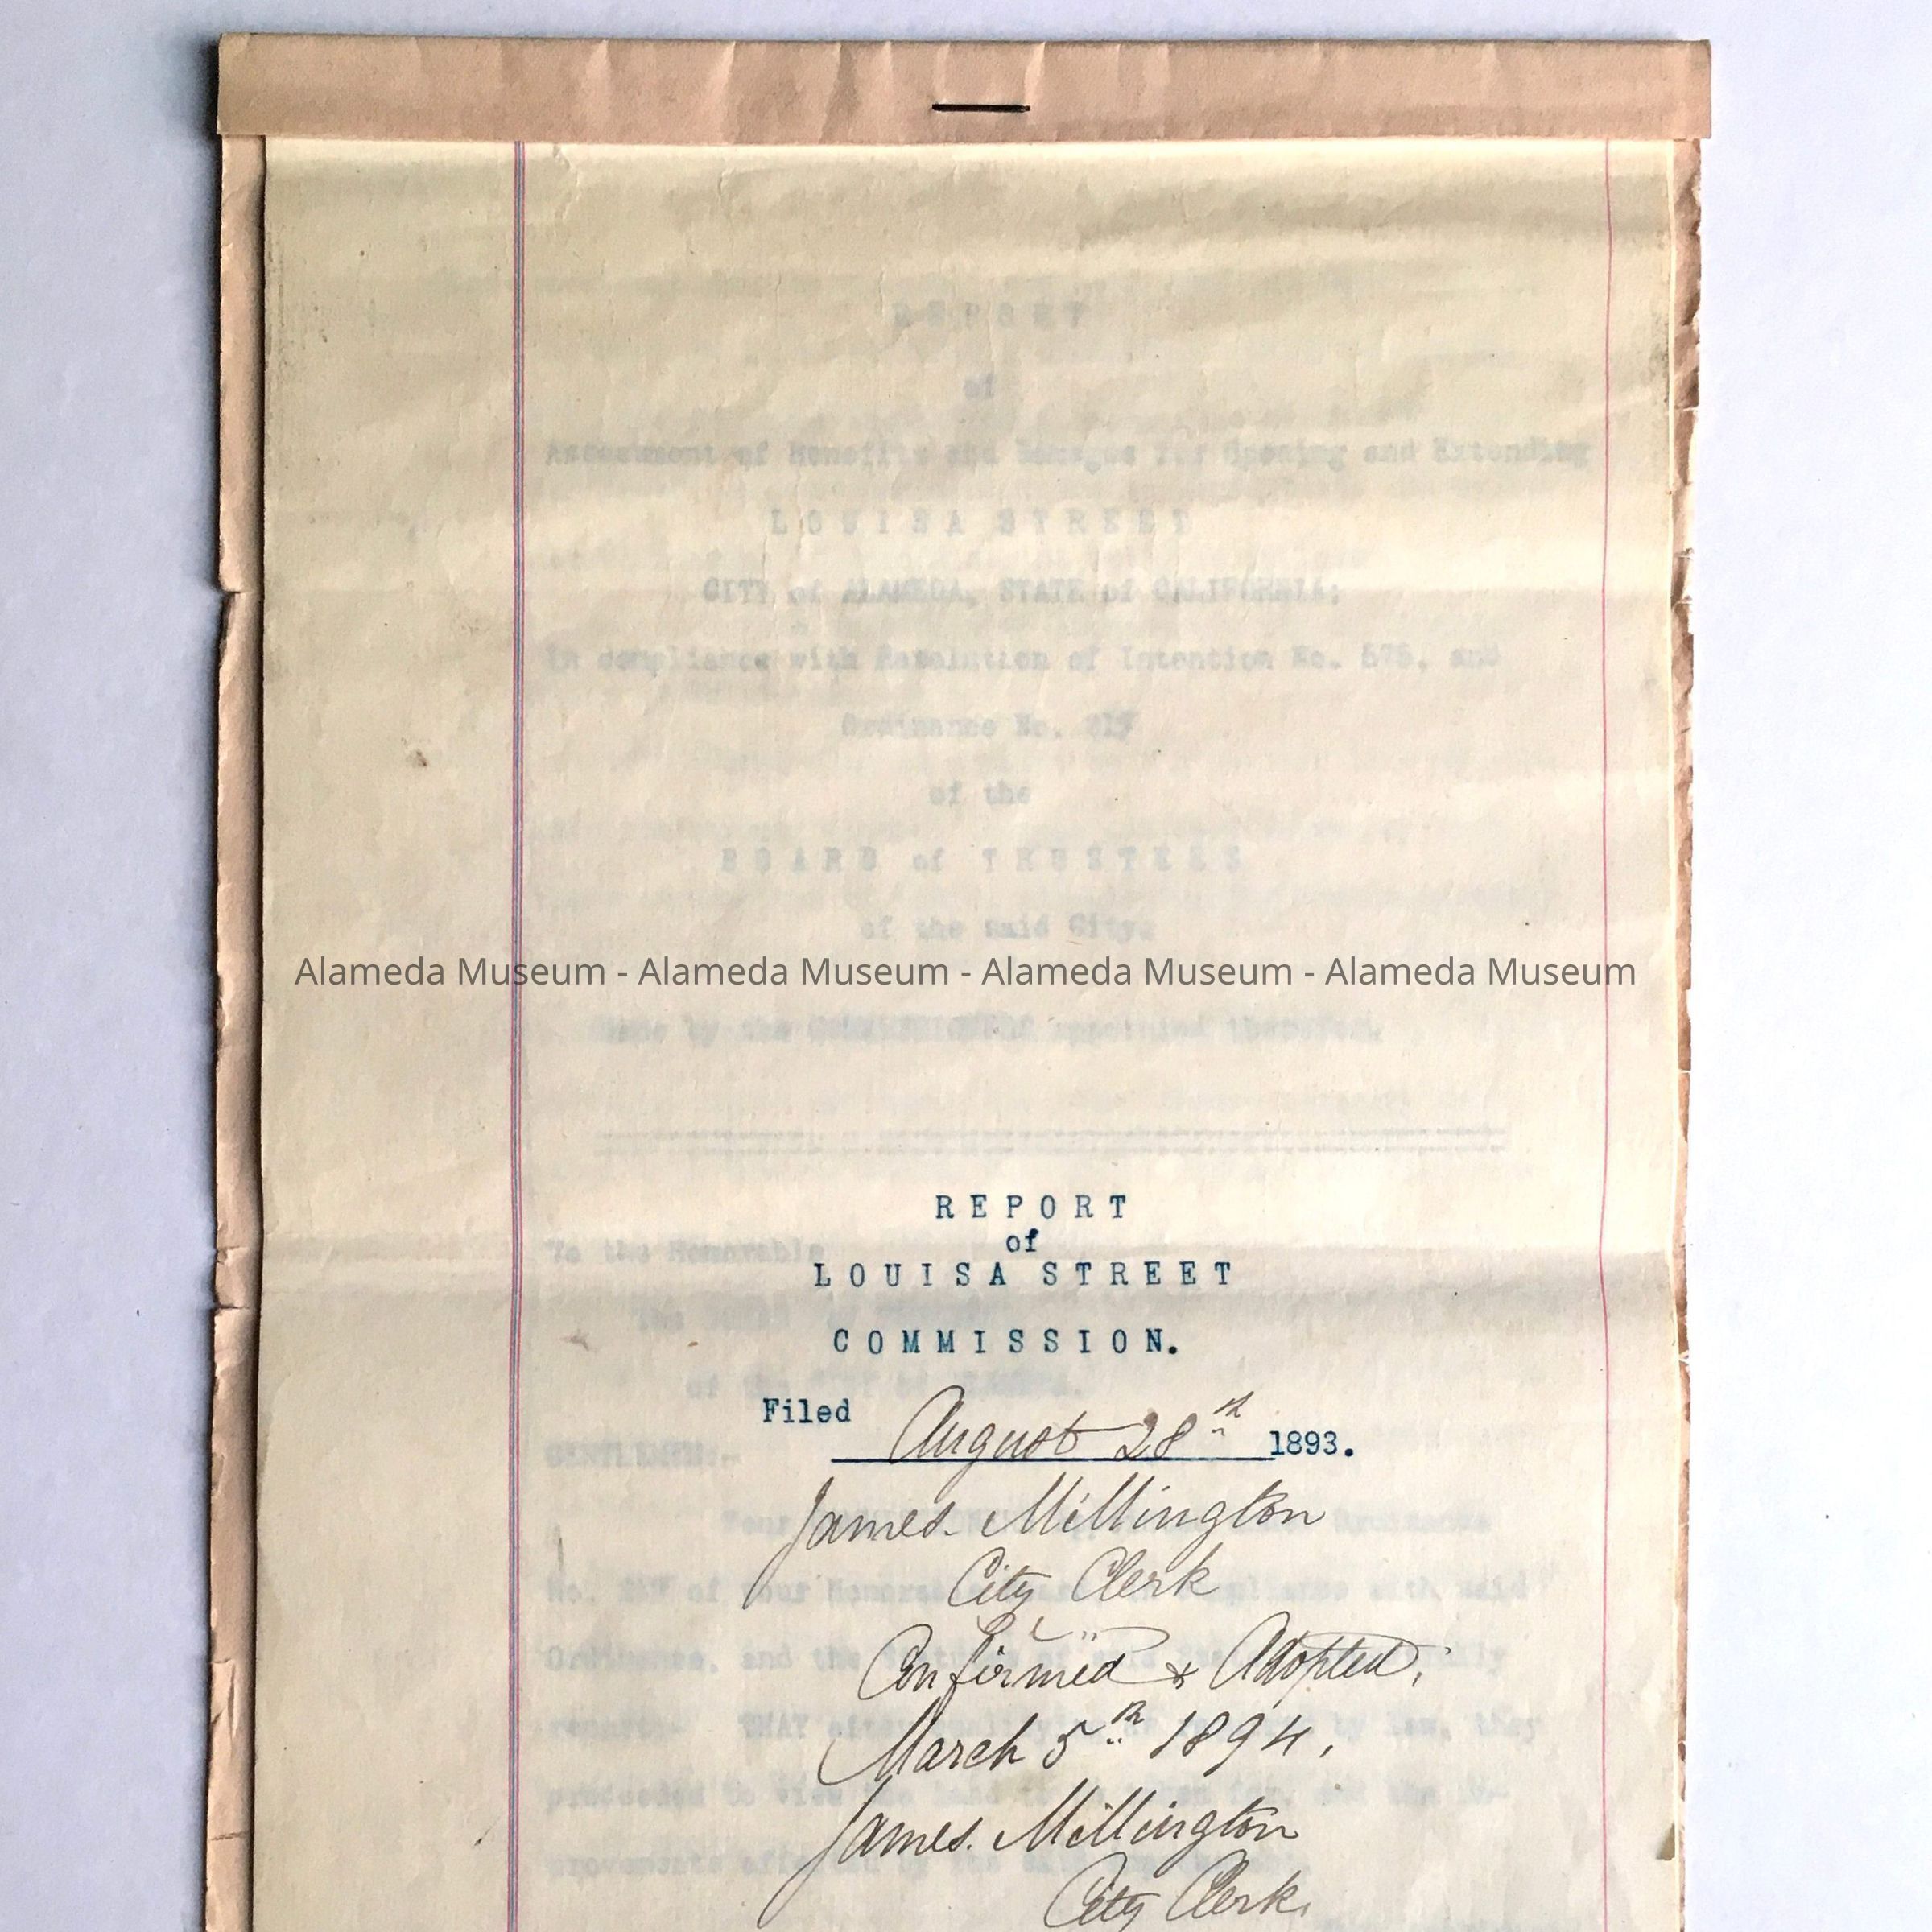 REPORT
of
Assessment of Benefits and Damages for Opening and Extending
LOUISA STREET
CITY of ALAMEDA, STATE of CALIFORNIA;
In compliance with Resolution of Intention No. and
Ordinance No.
of the
BOARD of TRUSTEES
of the said City.
Alameda Museum - Alameda Museum - Alameda Museum - Alameda Museum
Made by the COMMISSIONERS appointed therefor.
REPORT
To the Honorable
of
LOUISA STREET
The
COMMISSION.
of the CITY of ALAMEDA.
Filed August 28th 1893.
GENTLEMEN:-
James. Millington
Your Ordinance
City Clerk
No. of your Honorable compliance with said
Confirmed & Adopted.
Ordinance, and the
March 5th 1894.
report:- THAT after by law, they
proceeded to view the land for, and the im-
James. Millington
provements affected by the
City Clerk.